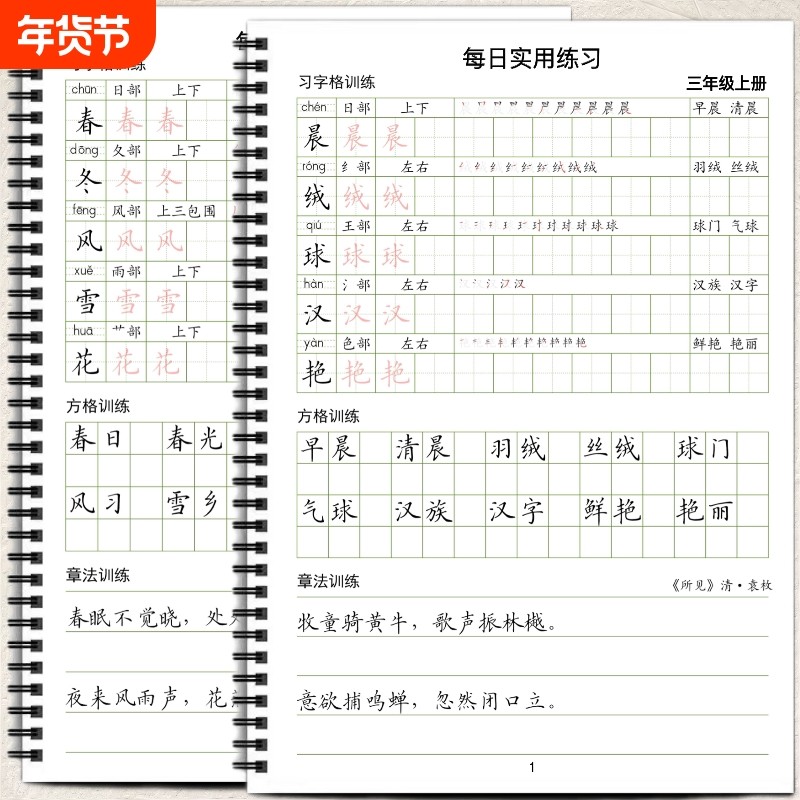 年货节
习字格训练
chūn 日部 上下
春 春 春
dōng 夂部 上下
冬 冬 冬
fēng 风部 上三包围
风 风 风
xuě 雨部 上下
雪 雪 雪
huā 艹部 上下
花 花 花
方格训练
春日 春光
风习 雪乡
章法训练
春眠不觉晓，处
夜来风雨声，花
每日实用练习
习字格训练 三年级上册
chén 日部 上下 早晨 清晨
晨 晨 晨
róng 纟部 左右 羽绒 丝绒
绒 绒 绒
qiú 王部 左右 球门 气球
球 球 球
hàn 氵部 左右 汉族 汉字
汉 汉 汉
yàn 色部 左右 鲜艳 艳丽
艳 艳 艳
方格训练
早晨 清晨 羽绒 丝绒 球门
气球 汉族 汉字 鲜艳 艳丽
章法训练
《所见》清·袁枚
牧童骑黄牛，歌声振林樾。
意欲捕鸣蝉，忽然闭口立。
1